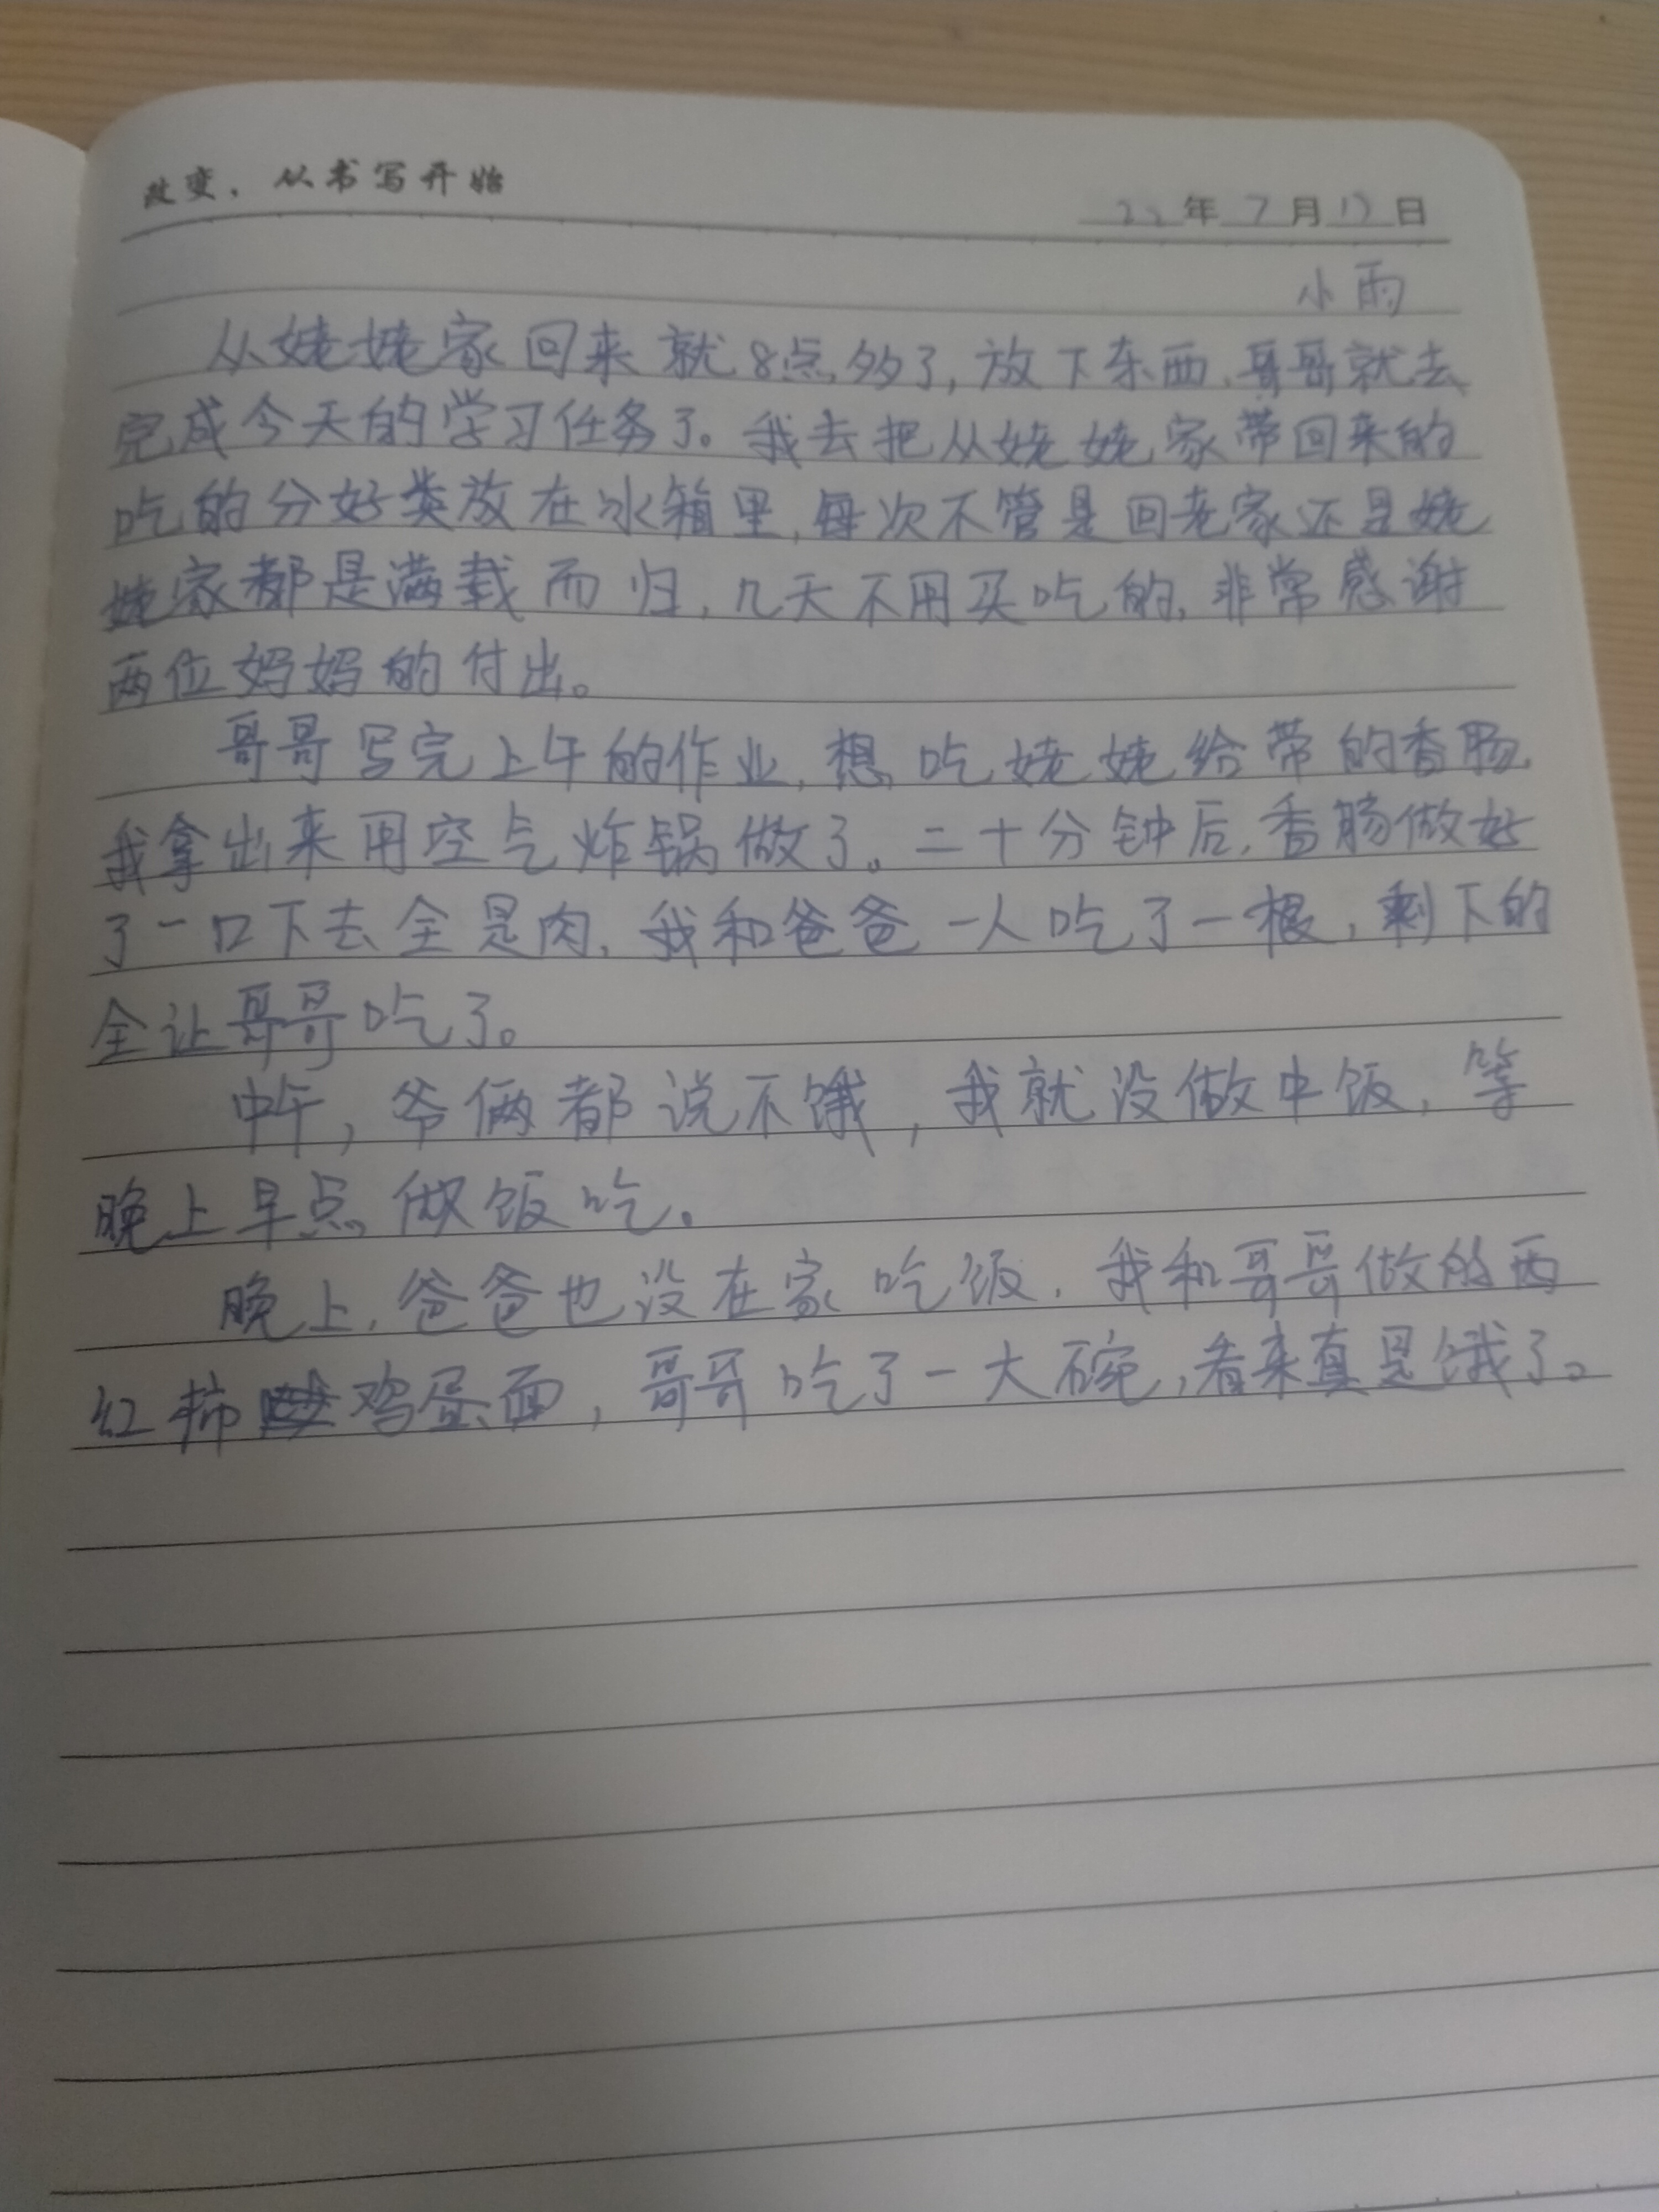 改变，从书写开始
22年7月12日
小雨
从姥姥家回来就8点多了，放下东西，哥哥就去
完成今天的学习任务了。我去把从姥姥家带回来的
吃的分好类放在冰箱里，每次不管是回老家还是姥
姥家都是满载而归，几天不用买吃的，非常感谢
两位妈妈的付出。
哥哥写完上午的作业，想吃姥姥给带的香肠，
我拿出来用空气炸锅做了。二十分钟后，香肠做好
了一口下去全是肉，我和爸爸一人吃了一根，剩下的
全让哥哥吃了。
中午，爷俩都说不饿，我就没做中饭，等
晚上早点做饭吃。
晚上，爸爸也没在家吃饭，我和哥哥做的西
红柿鸡蛋面，哥哥吃了一大碗，看来真是饿了。